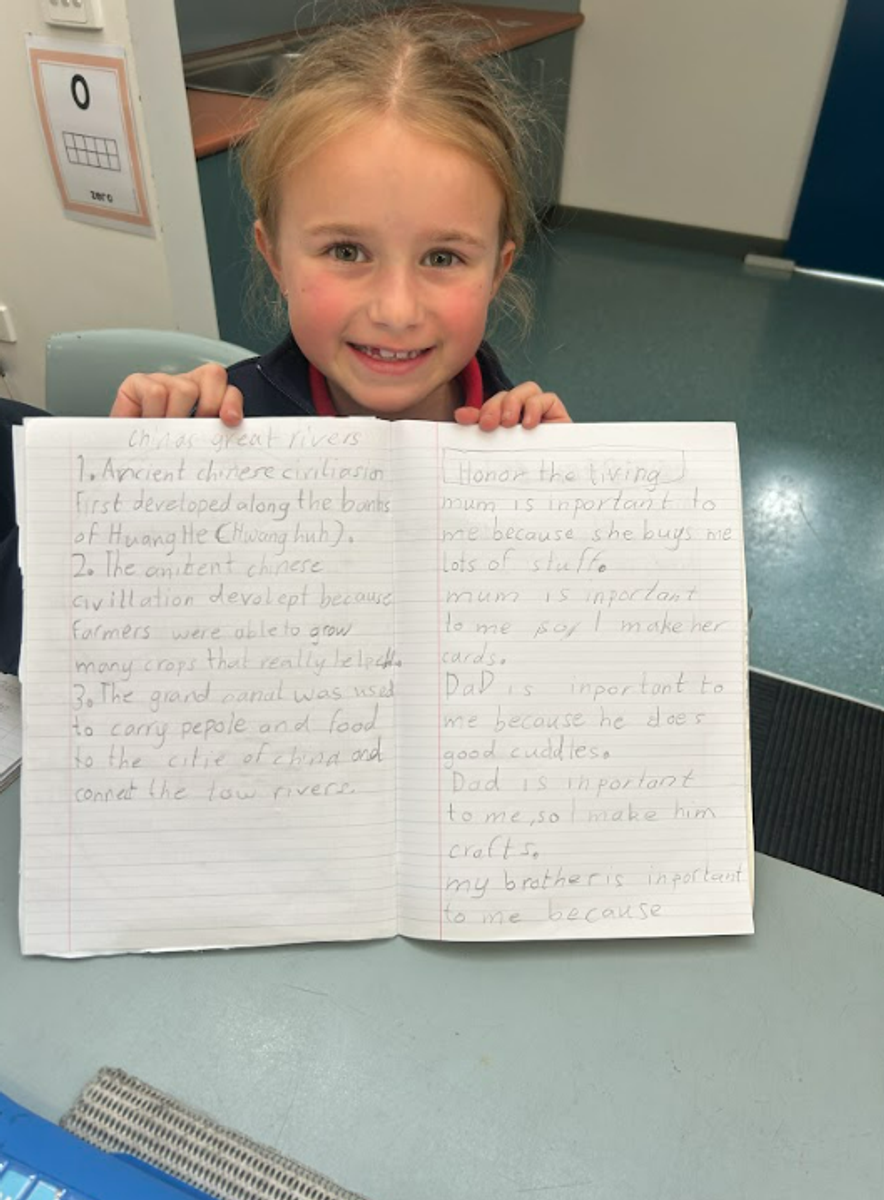 0
zero
chinas great rivers
1. Ancient chinese civiliasion
first developed along the banks
of Huang He (Hwang huh).
2. The anibent chinese
civillation devolept because
farmers were able to grow
many crops that really helped.
3. The grand canal was used
to carry pepole and food
to the citie of china and
connect the tow rivers.
Honor the living
mum is inportant to
me because she buys me
lots of stuff.
mum is inportant
to me so I make her
cards.
DaD is inportant to
me because he does
good cuddles.
Dad is inportant
to me, so I make him
crafts.
my brother is inportant
to me because